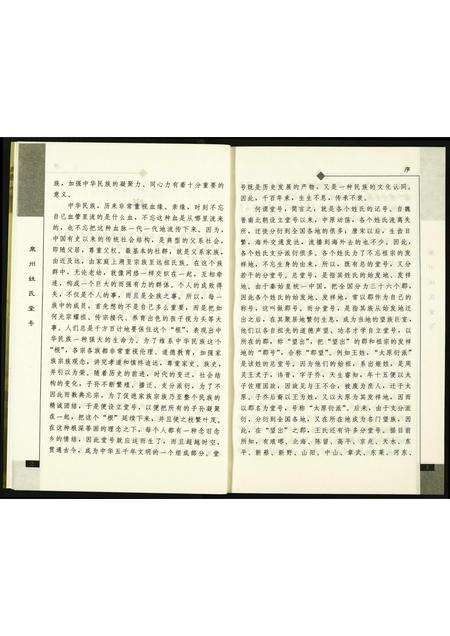 族，加强中华民族的凝聚力、同心力有着十分重要的
意义。
中华民族，历来非常重视血缘、亲缘，时刻不忘
自己血管里流的是什么血，不忘这种血是从哪里流来
的，也不忘把这种血脉一代一代地流传下来。因为，
中国有史以来的传统社会结构，是典型的父系社会，
即随父居，尊重父权。最基本的社群，就是家庭，
由近及远，由家庭上溯至宗族至远祖氏族。在这个族
群中，无论老幼，就像网络一样交织在一起，互相牵
连，构成一个巨大的而强有力的群体。个人的成败得
失，不仅是个人的事，而且是全族之事。所以，每一
族中的成员，首先想的不是自己多么重要，而是把如
何光宗耀祖、传宗接代、养育出色的孩子视为头等大
事。人们总是千方百计地要保住这个“根”，表现出中
华民族一种强大的生命力。为了维系中华民族这个
“根”，各宗各族都非常重视伦理、道德教育，加强家
族宗族观念，讲究孝道和慎终追远，尊重家史、族史，
并引以为荣。随着历史的前进，时代的变迁，社会结
构的变化，子孙不断繁殖、播迁、支分派衍，为了不
因此而数典忘宗，为了促进家族宗族乃至整个民族的
精诚团结，于是便设立堂号，以便把所有的子孙凝聚
在一起，把这个“根”延续下来，并且使之枝繁叶茂。
在这种根深蒂固的理念之下，每个人都有一种念旧念
乡的情结，因此堂号就应运而生了，而且超越时空，
贯通古今，成为中华五千年文明的一个组成部分。堂
泉州姓氏堂号
序
号既是历史发展的产物，又是一种民族的文化认同。
因此，千百年来，生生不息，传承不衰。
何谓堂号，简言之，就是各个姓氏的记号。自魏
晋南北朝设立堂号以来，中原动荡，各个姓氏流离失
所，迁徙分衍到全国各地的很多；唐宋以后，生齿日
繁，海外交通发达，流播到海外去的也不少。因此，
各个姓氏支分派衍很多。各个姓氏为了不忘祖宗的发
祥地，不忘生身的由来，所以，既有总的堂号，又分
若干的分堂号。总堂号，是指某姓氏的始发地、发祥
地，由于秦始皇统一中国，把全国分为三十六个郡，
因此各个姓氏的始发地、发祥地，常以郡作为自己的
称号，这叫做郡号。而分堂号，是指其族从始发地迁
出之后，在其聚居地繁衍生息，成为当地的望族巨室，
他们以各自祖先的道德声望、功名才学自立堂号，以
所在的郡，称“望出”，把“望出”的郡和祖宗的发祥
地的“郡号”，合称“郡望”。例如王姓，“太原衍派”
是该姓的总堂号。因为他们的始祖，系出姬姓，是周
灵王灵子，
子佐理国政，因谏
原，子孙后裔以王为姓，又以太原为其发祥地，因而
以郡名为堂号，称“太原衍派”。后来，由于支分派
衍，分衍到全国各地，又在所在地成为名门望族，因
此，在“望出”之郡，王氏还有许多分堂号。据目前
所知，有琅琊、北海、陈留、高平、京兆、天水、东
平、新蔡、新野、山阳、中山、章武、东莱、河东、